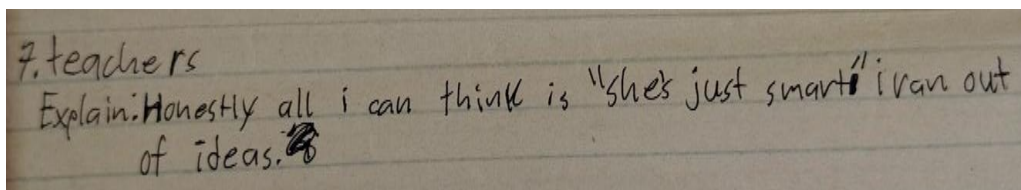 7. teachers
Explain: Honestly all i can think is "she's just smart" i ran out
of ideas.